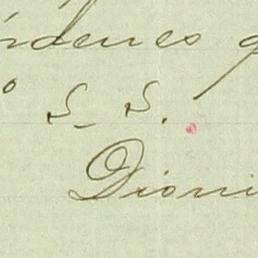 órdenes q
o S. S.
Dioni